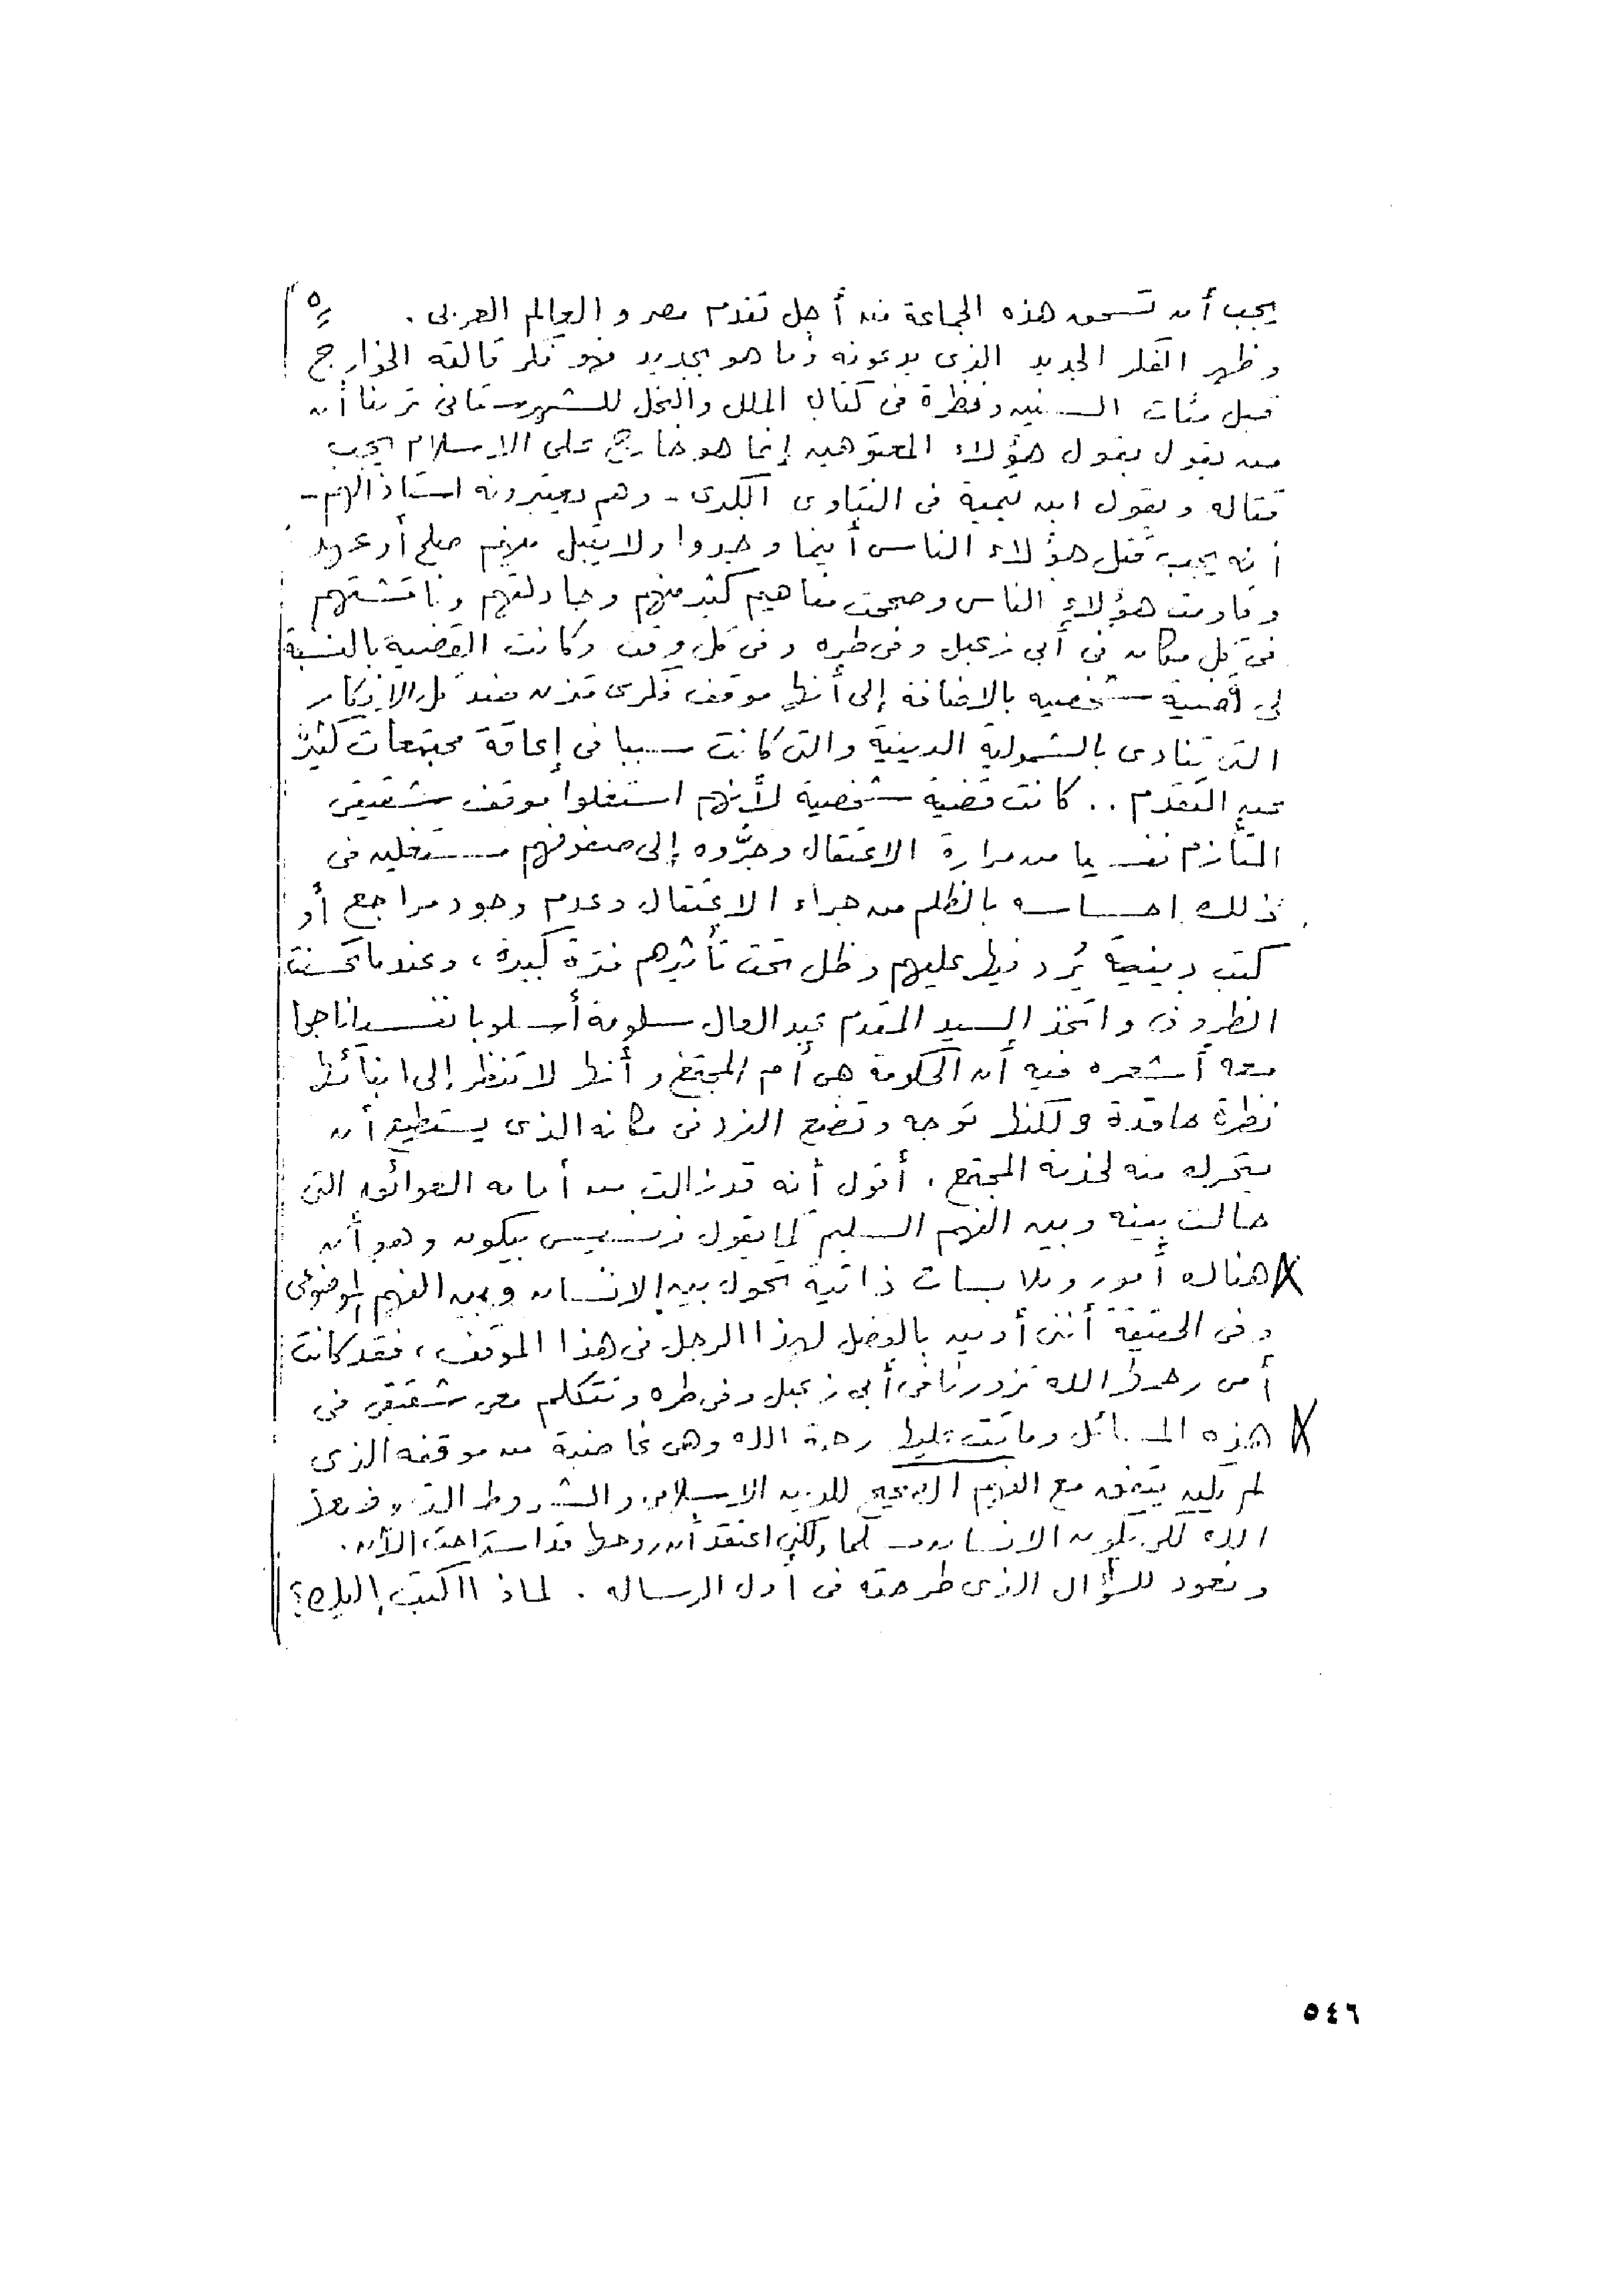 ٥
يجب أن تسحق هذه الجماعة من أجل تقدم مصر والعالم العربى .
وظهر الفكر الجديد الذى يدعونه وما هو بجديد فهو فكر قالته الخوارج
قبل مئات السنين ونظرة فى كتاب الملل والنحل للشهرستانى ترينا أن
من يقول بقول هؤلاء المعتوهين إنما هو خارج على الاسلام يجب
قتاله ويقول ابن تيمية فى الفتاوى الكبرى - وهم يعتبرونه استاذا لهم -
أنه يجب قتل هؤلاء الناس أينما وجدوا ولا يقبل منهم صلح أو عهد
وقاومت هؤلاء الناس وصححت مفاهيم كثير منهم وجادلتهم وناقشتهم
فى كل مكان فى أبى زعبل وفى طره وفى كل وقت وكانت القضية بالنسبة
لى قضية شخصيه بالاضافة إلى أنها موقف فكرى ضد كل الافكار
التى تنادى بالشمولية الدينية والتى كانت سببا فى إعاقة مجتمعات كثيرة
عن التقدم .. كانت قضية شخصية لأنهم استغلوا موقف شقيقى
المتأزم نفسيا من مرارة الاعتقال وجرُّوه إلى صفوفهم مستغلين فى
ذلك احساسه بالظلم من جراء الاعتقال وعدم وجود مراجع أو
كتب دينية يُرد فيها عليهم وظل تحت تأثيرهم فترة كبيرة ، وعندما تحسنت
الظروف واتخذ السيد المقدم عبد العال سلومة أسلوبا نفسيا ناجحا
معه أشعره فيه أن الحكومة هى أم المجتمع وأنها لا تنظر إلى ابنائها
نظرة حاقدة ولكنها توجه وتضع الفرد فى مكانه الذى يستطيع أن
يتحرك منه لخدمة المجتمع . أقول أنه قد زالت من أمامه العوائق التى
حالت بينه وبين الفهم السليم كما يقول فرنسيس بيكون وهو أن
هناك أمور وملابسات ذاتية تحول بين الانسان وبين الفهم الموضوعى
وفى الحقيقة أننى أدين بالفضل لهذا الرجل فى هذا الموقف ، فقد كانت
أمى رحمها الله تزورنا فى أبى زعبل وفى طره وتتكلم مع شقيقى فى
هذه المسائل وماتت عليها رحمة الله وهى غاضبة من موقفه الذى
لم يكن يتفق مع الفهم الصحيح للدين الاسلامى والشروط التى وضعها
الله لكى يكون الانسان مسلما ولكنى اعتقد أن روحها قد استراحت الآن .
ونعود للسؤال الذى طرحته فى أول الرساله . لماذا اكتب إليك ؟
٥٤٦